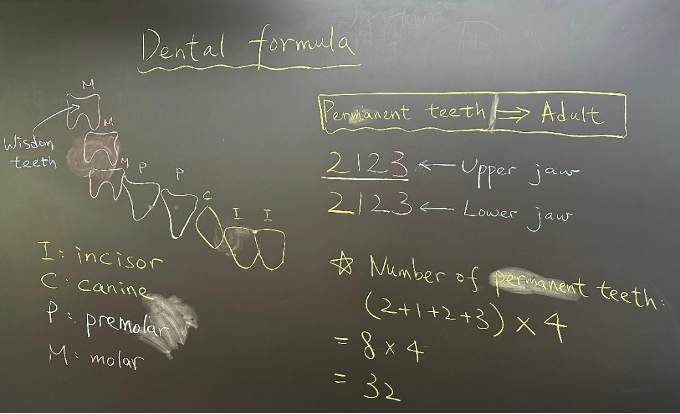 Dental formula
M
M
M P P C I I
Wisdom
teeth
I: incisor
C: canine
P: premolar
M: molar
Permanent teeth ⇒ Adult
2123 ← Upper jaw
2123 ← Lower jaw
☆ Number of permanent teeth:
(2+1+2+3) × 4
= 8 × 4
= 32